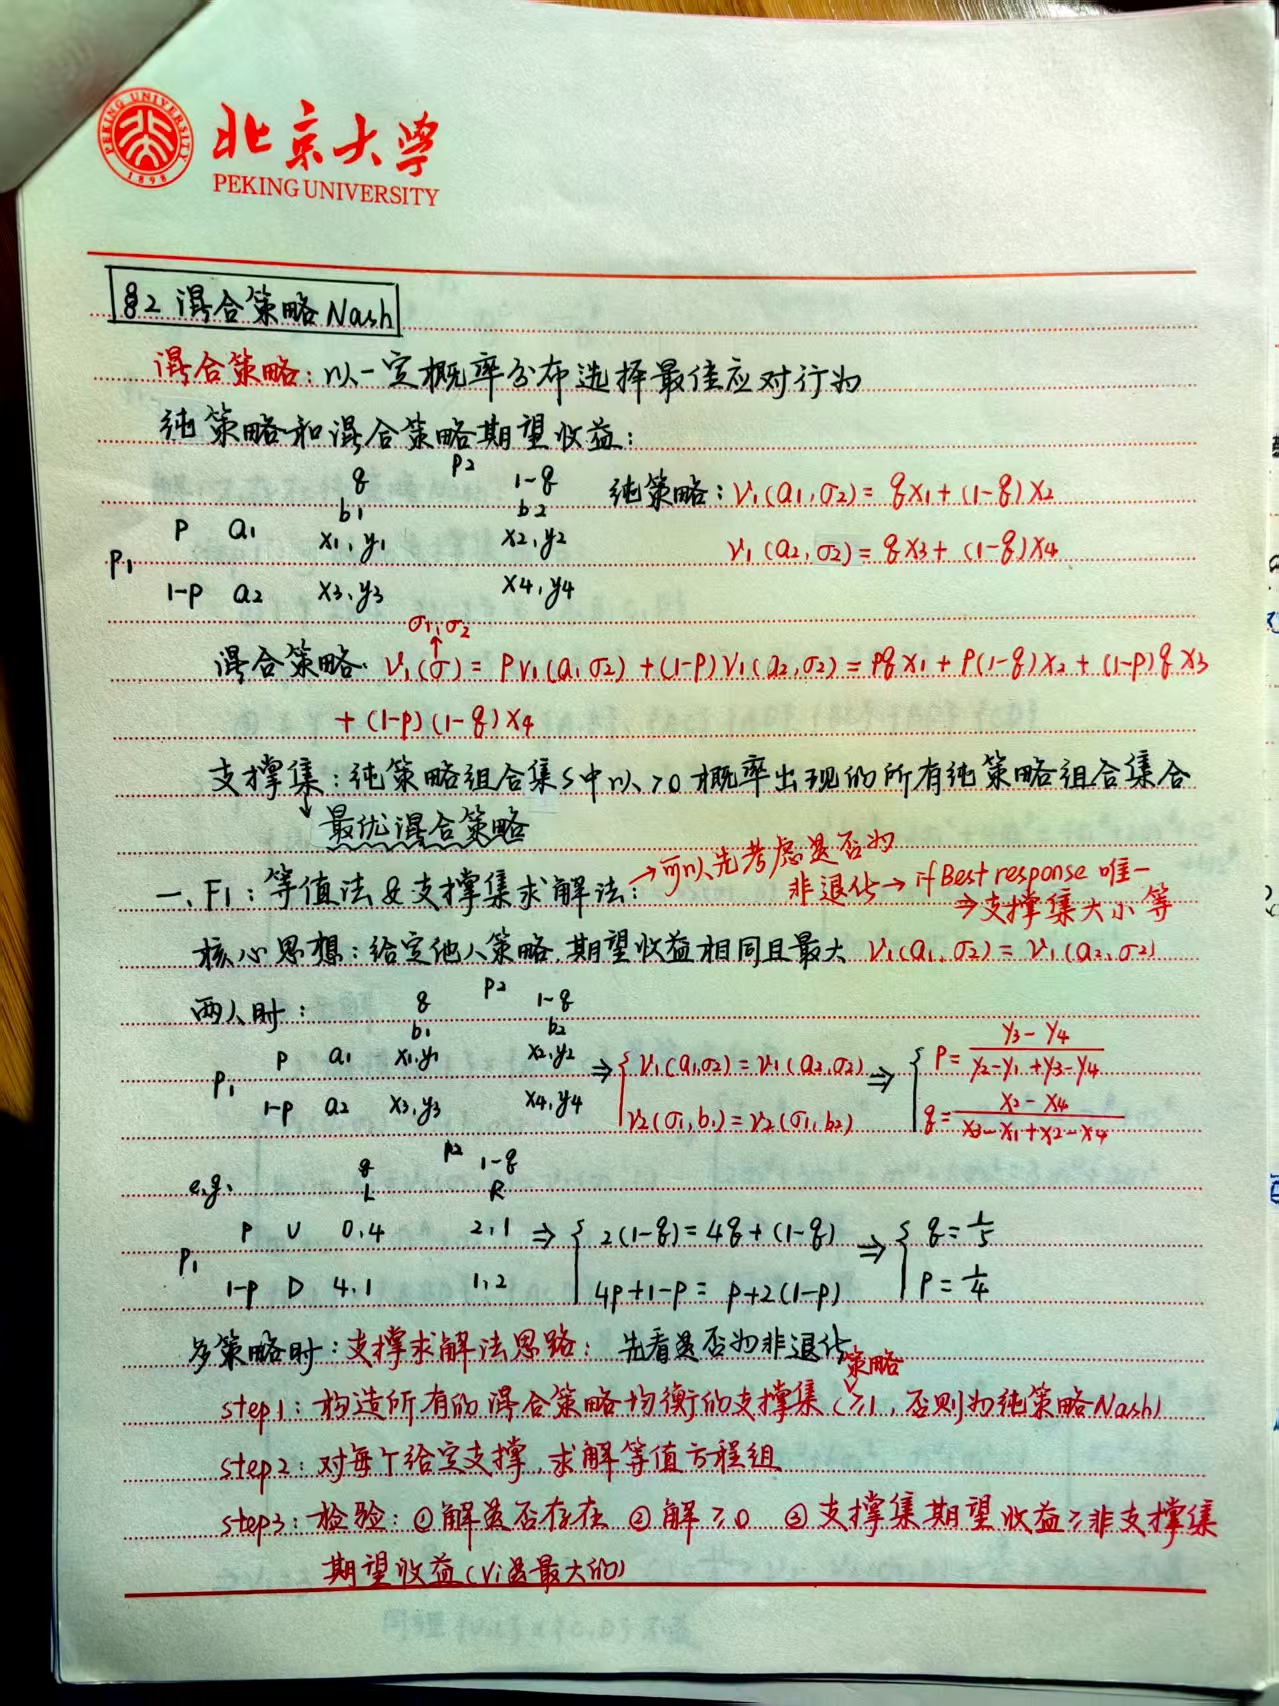 PEKING UNIVERSITY
1898
北京大学
PEKING UNIVERSITY
§2 混合策略Nash
混合策略：以一定概率分布选择最佳应对行为
纯策略和混合策略期望收益：
P2
q 1-q
b1 b2
P a1 x1,y1 x2,y2
P1
1-P a2 x3,y3 x4,y4
纯策略：V1(a1,σ2)=qx1+(1-q)x2
V1(a2,σ2)=qx3+(1-q)x4
σ1,σ2
↑
混合策略 V1(σ)=PV1(a1,σ2)+(1-P)V1(a2,σ2)=Pqx1+P(1-q)x2+(1-P)qx3
+(1-P)(1-q)x4
支撑集：纯策略组合集S中以>0概率出现的所有纯策略组合集合
↓最优混合策略
一、F1：等值法&支撑集求解法：→可以先考虑是否为
非退化→if Best response 唯一
⇒支撑集大小等
核心思想：给定他人策略,期望收益相同且最大 V1(a1,σ2)=V1(a2,σ2)
两人时：
P2
q 1-q
b1 b2
P a1 x1,y1 x2,y2
P1
1-P a2 x3,y3 x4,y4
⇒{V1(a1,σ2)=V1(a2,σ2)
V2(σ1,b1)=V2(σ1,b2)
⇒{P=(y3-y4)/(y2-y1+y3-y4)
q=(x2-x4)/(x3-x1+x2-x4)
e.g.
P2
q 1-q
L R
P U 0,4 2,1
P1
1-P D 4,1 1,2
⇒{2(1-q)=4q+(1-q)
4P+1-P=P+2(1-P)
⇒{q=1/5
P=1/4
多策略时：支撑求解法思路：先看是否为非退化
策略
step1：构造所有的混合策略均衡的支撑集(≥1,否则为纯策略Nash)
step2：对每个给定支撑,求解等值方程组
step3：检验：①解是否存在 ②解≥0 ③支撑集期望收益≥非支撑集
期望收益(Vi是最大的)